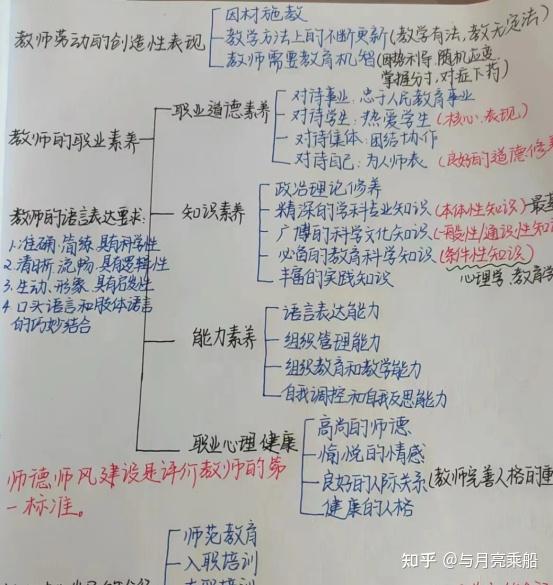 因材施教
教师劳动的创造性表现
教学方法上的不断更新(教学有法,教无定法)
教师需要教育机智(因势利导,随机应变
掌握分寸,对症下药)
教师的职业素养
职业道德素养
对待事业:忠于人民教育事业
对待学生:热爱学生(核心、表现)
对待集体:团结协作
对待自己:为人师表(良好的道德修养
知识素养
政治理论修养
精深的学科专业知识(本体性知识)
广博的科学文化知识(一般性/通识性知识
必备的教育科学知识(条件性知识)
心理学、教育学
丰富的实践知识
教师的语言表达要求:
1.准确、简练、具有科学性
2.清晰、流畅、具有逻辑性
3.生动、形象、具有启发性
4.口头语言和肢体语言
的巧妙结合
能力素养
语言表达能力
组织管理能力
组织教育和教学能力
自我调控和自我反思能力
职业心理健康
高尚的师德
愉悦的情感
良好的人际关系(教师完善人格的重
健康的人格
师德师风建设是评价教师的第
一标准。
师范教育
入职培训
在职培训
知乎 @与月亮乘船